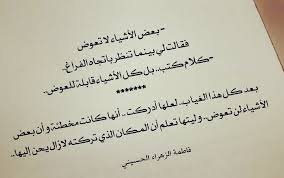 - بعض الأشياء لا تعوض
فقالت لي بينما تنظر باتجاه الفراغ..
- كلام كتب.. بل كل الأشياء قابلة للعوض..
*******
بعد كل هذا الغياب.. لعلها أدركت.. أنها كانت مخطئة و أن بعض
الأشياء لن تعوض.. و ليتها تعلم أن المكان الذي تركته لازال يحن إليها..
فاطمة الزهراء الحسيني